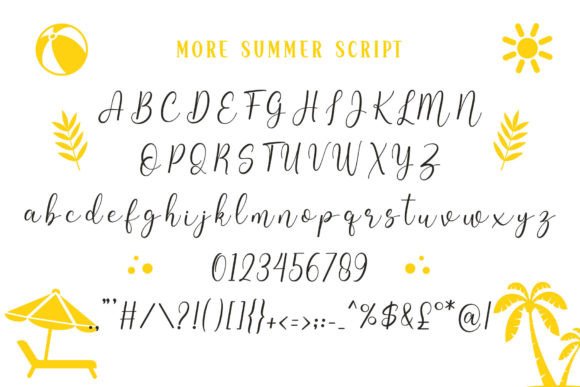 MORE SUMMER SCRIPT
ABCDEFGHIJKLMN
OPQRSTUVWXYZ
abcdefghijklmnopqrstuvwxyz
0123456789
.,"'#/\?!()[]{}+<=>;:-_^%$&£º*@|